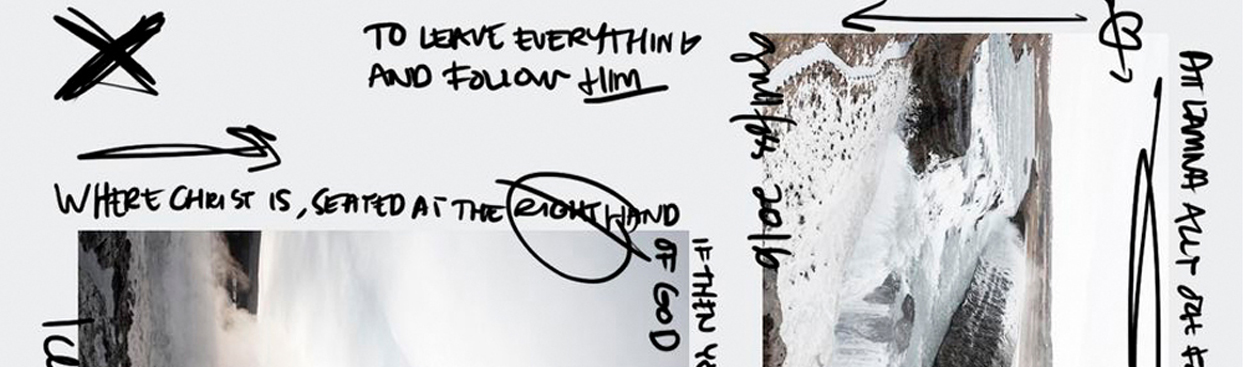 TO LEAVE EVERYTHING
AND FOLLOW HIM
WHERE CHRIST IS, SEATED AT THE RIGHT HAND
OF GOD
IF THEN
gullfoss 2016
ATT LÄMNA ALLT OCH